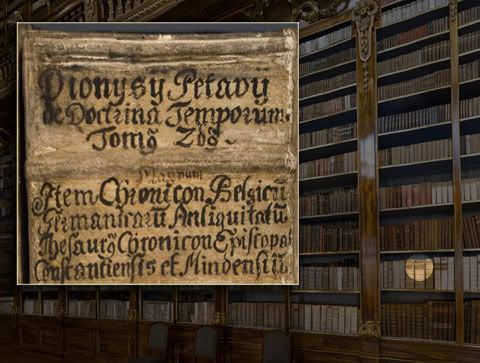 Dionysÿ Petavÿ
de Doctrina Temporum.
Tomȝ 2dȝ
Magnum
Item Chronicon Belgicū
Germanicarū Antiquitatū
Thesaurȝ Chronicon Episcopal
Constantiensis et Mindensiū